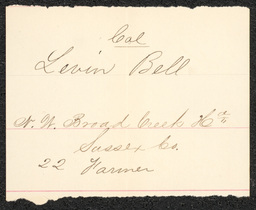 Col
Levin Bell
N. W. Broad Creek Hd
Sussex Co.
22 Farmer